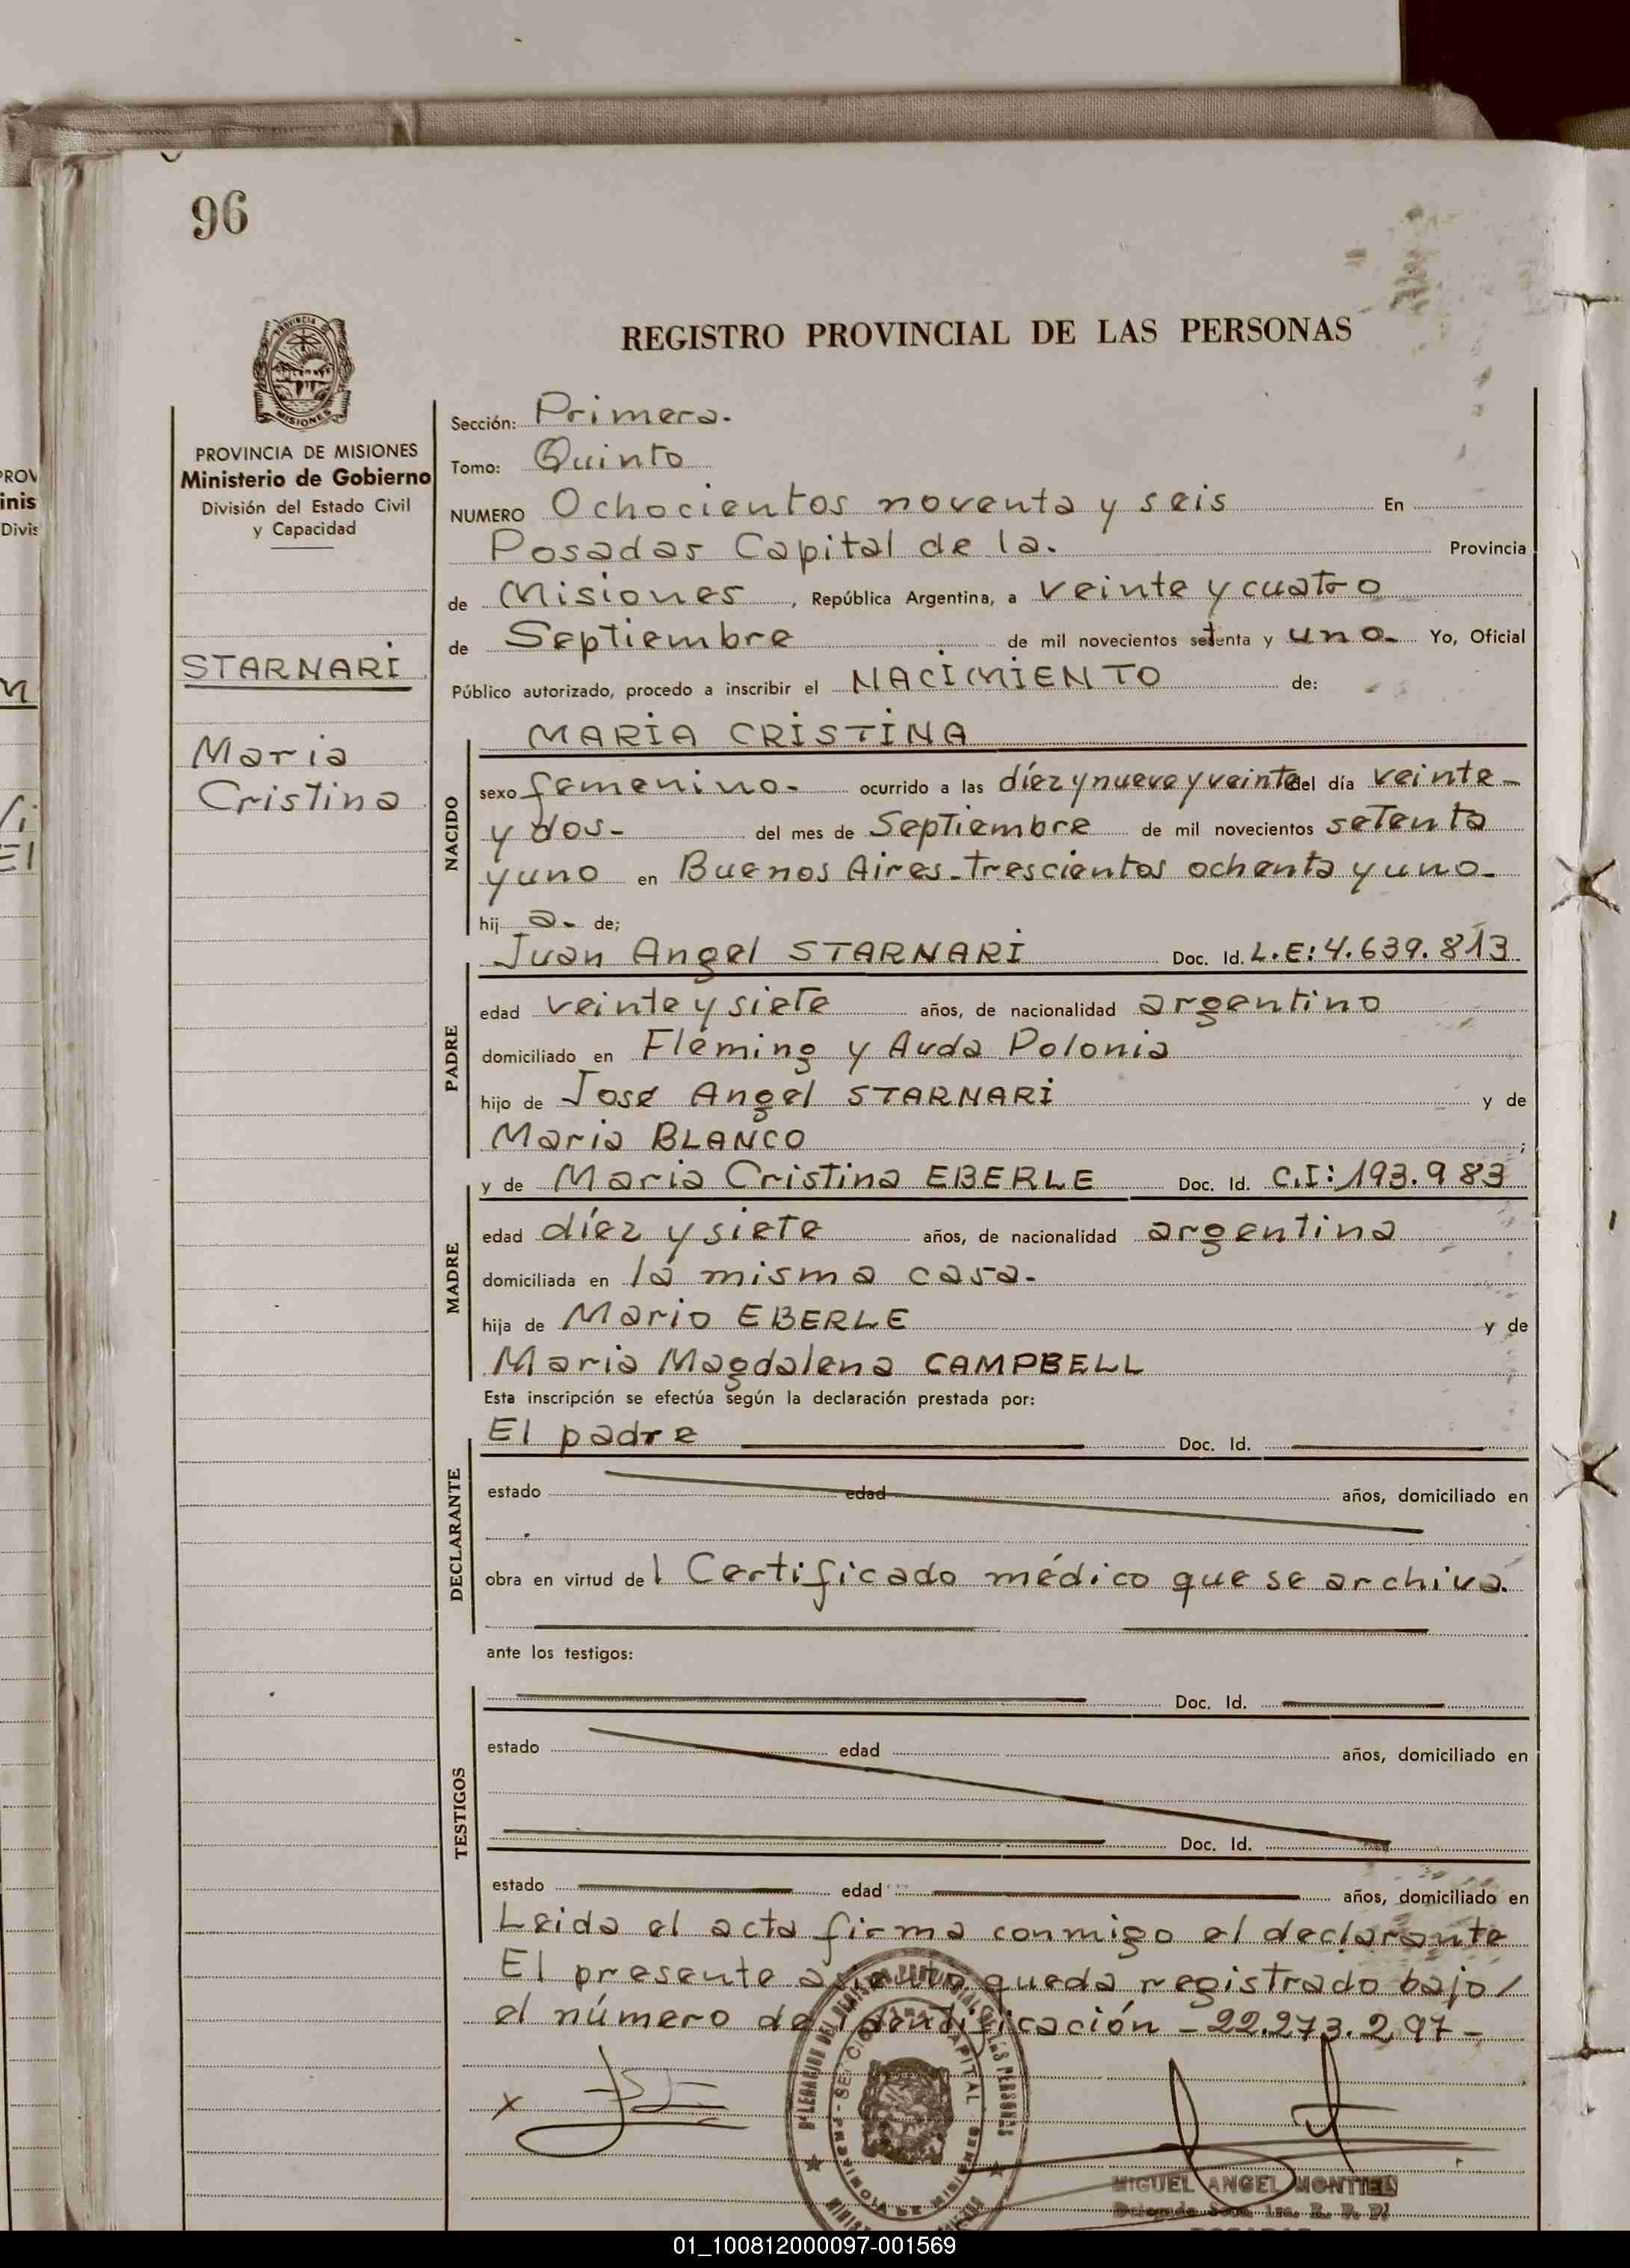 96
REGISTRO PROVINCIAL DE LAS PERSONAS
PROVINCIA DE MISIONES
Ministerio de Gobierno
División del Estado Civil
y Capacidad
STARNARI
Maria
Cristina
Sección: Primera.
Tomo: Quinto
NUMERO Ochocientos noventa y seis En
Posadas Capital de la. Provincia
de Misiones, República Argentina, a veinte y cuatro
de Septiembre de mil novecientos setenta y uno. Yo, Oficial
Público autorizado, procedo a inscribir el NACIMIENTO de:
NACIDO
MARIA CRISTINA
sexo femenino- ocurrido a las díez y nueve y veinte del día veinte-
y dos- del mes de Septiembre de mil novecientos setenta
y uno en Buenos Aires-trescientos ochenta y uno-
hij a- de;
PADRE
Juan Angel STARNARI Doc. Id. L.E: 4.639.813
edad veinte y siete años, de nacionalidad argentino
domiciliado en Fleming y Avda Polonia
hijo de José Angel STARNARI y de
Maria BLANCO ;
MADRE
y de Maria Cristina EBERLE Doc. Id. C.I: 193.983
edad díez y siete años, de nacionalidad argentina
domiciliada en la misma casa.
hija de Mario EBERLE y de
Maria Magdalena CAMPBELL
Esta inscripción se efectúa según la declaración prestada por:
DECLARANTE
El padre Doc. Id.
estado edad años, domiciliado en
obra en virtud del Certificado médico que se archiva.
ante los testigos:
TESTIGOS
Doc. Id.
estado edad años, domiciliado en
Doc. Id.
estado edad años, domiciliado en
Leida el acta firma conmigo el declarante
El presente asiento queda registrado bajo/
el número de identificación -22.273.297-
MIGUEL ANGEL MONTIEL
01_100812000097-001569